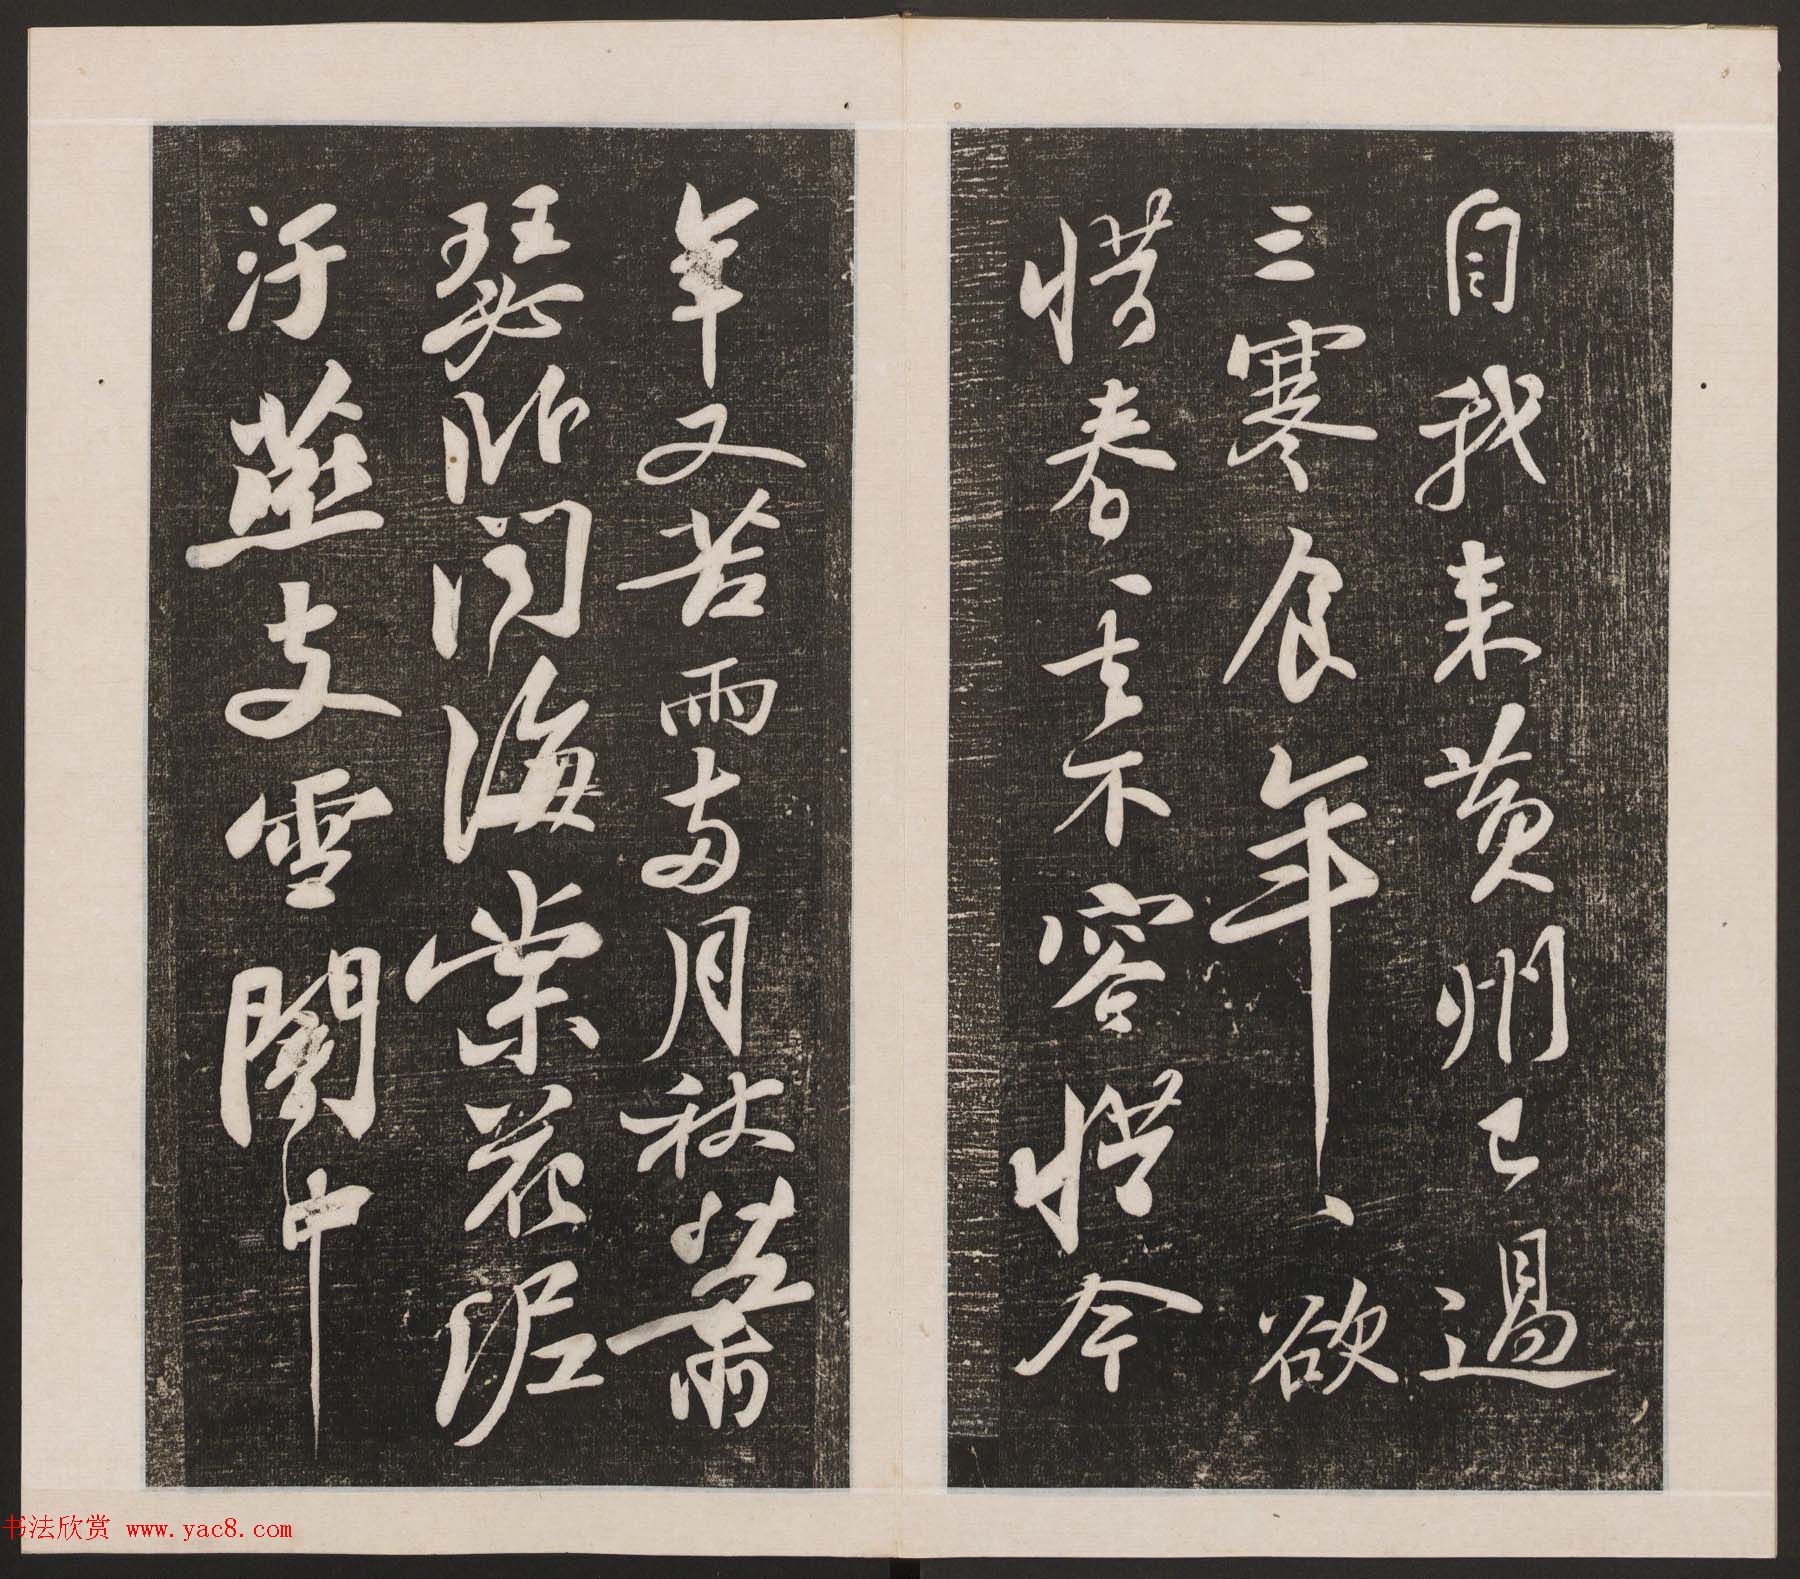 自我来黄州已過
三寒食年、欲
惜春、去不容惜今
年又苦雨兩月秋蕭
瑟卧聞海棠花泥
汙燕支雪闇中
书法欣赏 www.yac8.com